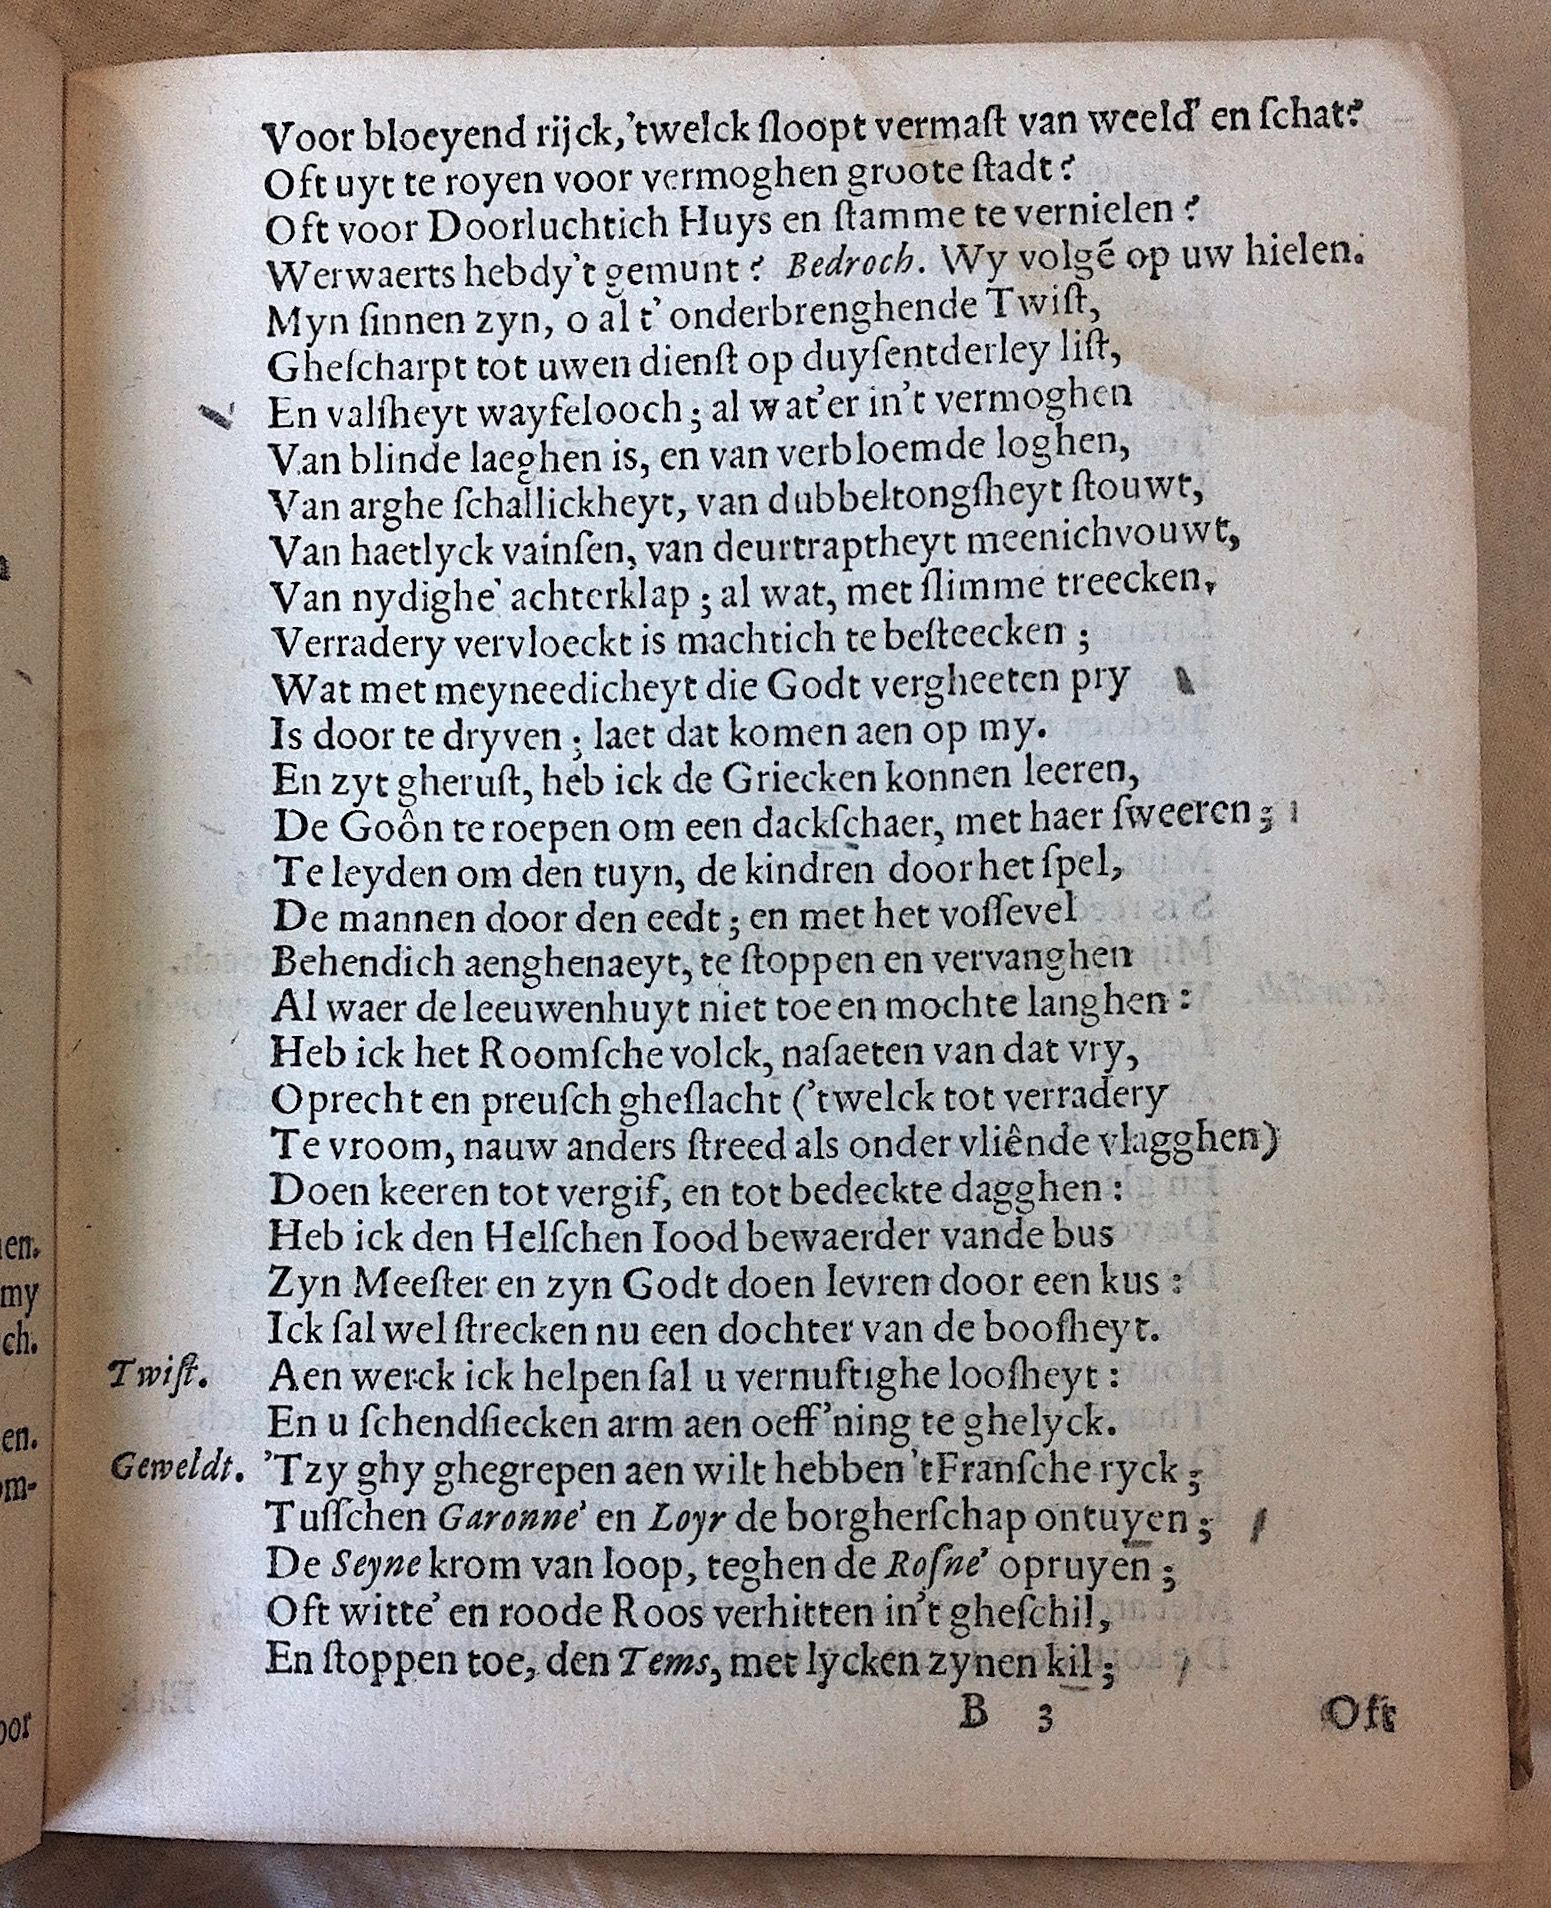 Voor bloeyend rijck, 'twelck ſloopt vermaſt van weeld' en ſchat?
Oft uyt te royen voor vermoghen groote ſtadt?
Oft voor Doorluchtich Huys en ſtamme te vernielen?
Werwaerts hebdy't gemunt? Bedroch. Wy volgē op uw hielen.
Myn ſinnen zyn, o al t' onderbrenghende Twiſt,
Gheſcharpt tot uwen dienſt op duyſentderley liſt,
En valſheyt wayfelooch; al wat'er in't vermoghen
Van blinde laeghen is, en van verbloemde loghen,
Van arghe ſchallickheyt, van dubbeltongſheyt ſtouwt,
Van haetlyck vainſen, van deurtraptheyt meenichvouwt,
Van nydighe' achterklap; al wat, met ſlimme treecken,
Verradery vervloeckt is machtich te beſteecken;
Wat met meyneedicheyt die Godt vergheeten pry
Is door te dryven; laet dat komen aen op my.
En zyt gheruſt, heb ick de Griecken konnen leeren,
De Goôn te roepen om een dackſchaer, met haer ſweeren;
Te leyden om den tuyn, de kindren door het ſpel,
De mannen door den eedt; en met het voſſevel
Behendich aenghenaeyt, te ſtoppen en vervanghen
Al waer de leeuwenhuyt niet toe en mochte langhen:
Heb ick het Roomſche volck, naſaeten van dat vry,
Oprecht en preuſch gheſlacht ('twelck tot verradery
Te vroom, nauw anders ſtreed als onder vliênde vlagghen)
Doen keeren tot vergif, en tot bedeckte dagghen:
Heb ick den Helſchen Iood bewaerder vande bus
Zyn Meeſter en zyn Godt doen Ievren door een kus:
Ick ſal wel ſtrecken nu een dochter van de booſheyt.
Twiſt. Aen werck ick helpen ſal u vernuftighe looſheyt:
En u ſchendſiecken arm aen oeff'ning te ghelyck.
Geweldt. 'Tzy ghy ghegrepen aen wilt hebben 't Franſche ryck;
Tuſſchen Garonne' en Loyr de borgherſchap ontuyen;
De Seyne krom van loop, teghen de Roſne' opruyen;
Oft witte' en roode Roos verhitten in't gheſchil,
En ſtoppen toe, den Tems, met lycken zynen kil;
B 3 Oft